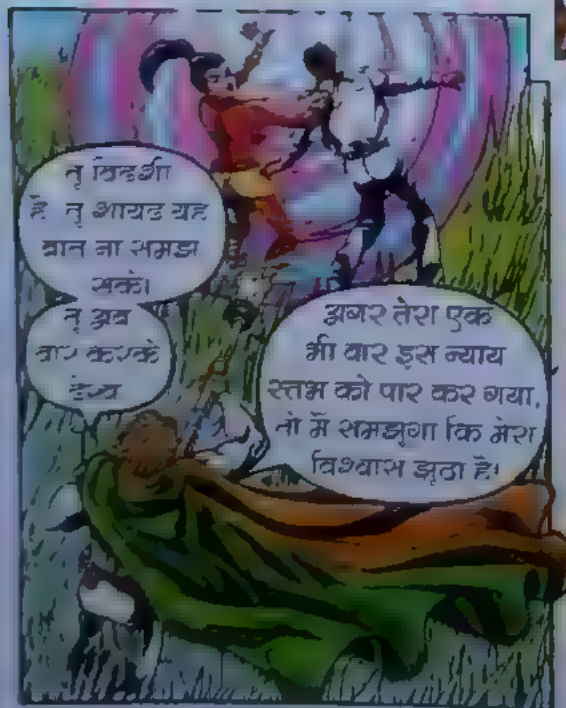 तू विदेशी
है तू शायद यह
बात ना समझ
सके।
तू अब
वार करके
देख
अगर तेरा एक
भी वार इस न्याय
स्तंभ को पार कर गया,
तो मैं समझूंगा कि मेरा
विश्वास झूठा है।